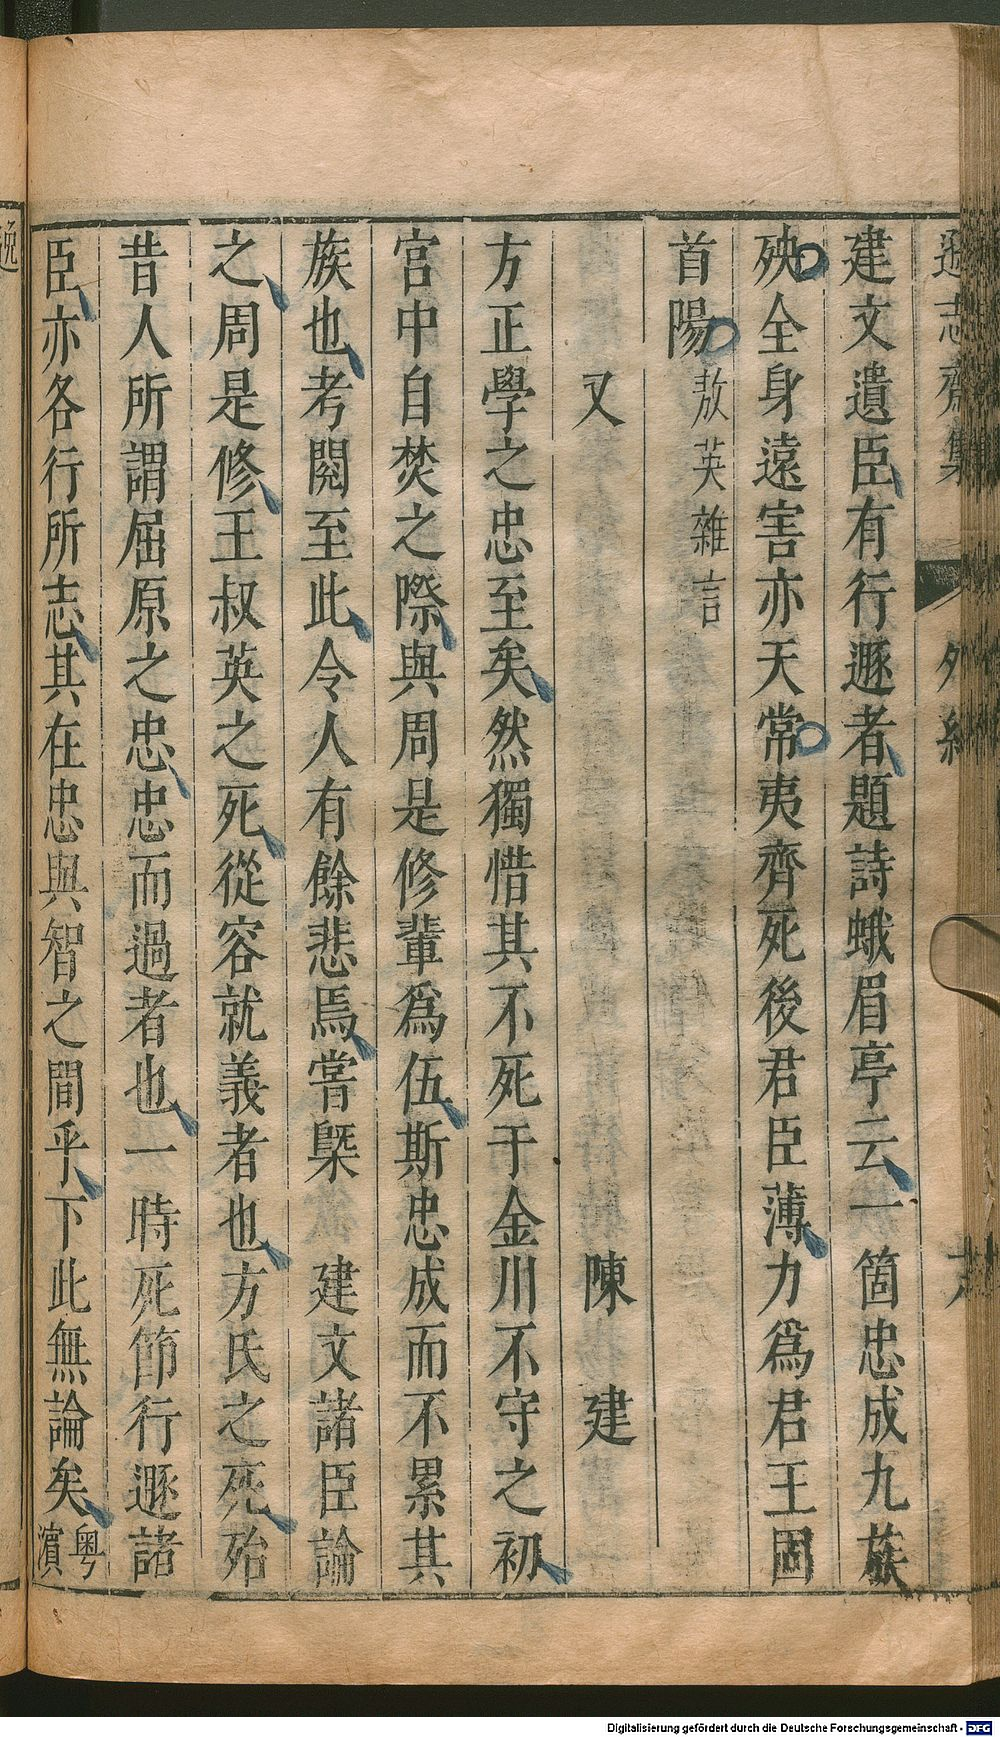 遜志齋集 外紀
建文遺臣有行遯者題詩蛾眉亭云一箇忠成九族
殃全身遠害亦天常夷齊死後君臣薄力爲君王固
首陽敖英雜言
又 陳 建
方正學之忠至矣然獨惜其不死于金川不守之初
宮中自焚之際與周是修輩爲伍斯忠成而不累其
族也考閱至此令人有餘悲焉嘗槩 建文諸臣論
之周是修王叔英之死從容就義者也方氏之死殆
昔人所謂屈原之忠忠而過者也一時死節行遯諸
臣亦各行所志其在忠與智之間乎下此無論矣粵濱
逸
Digitalisierung gefördert durch die Deutsche Forschungsgemeinschaft - DFG